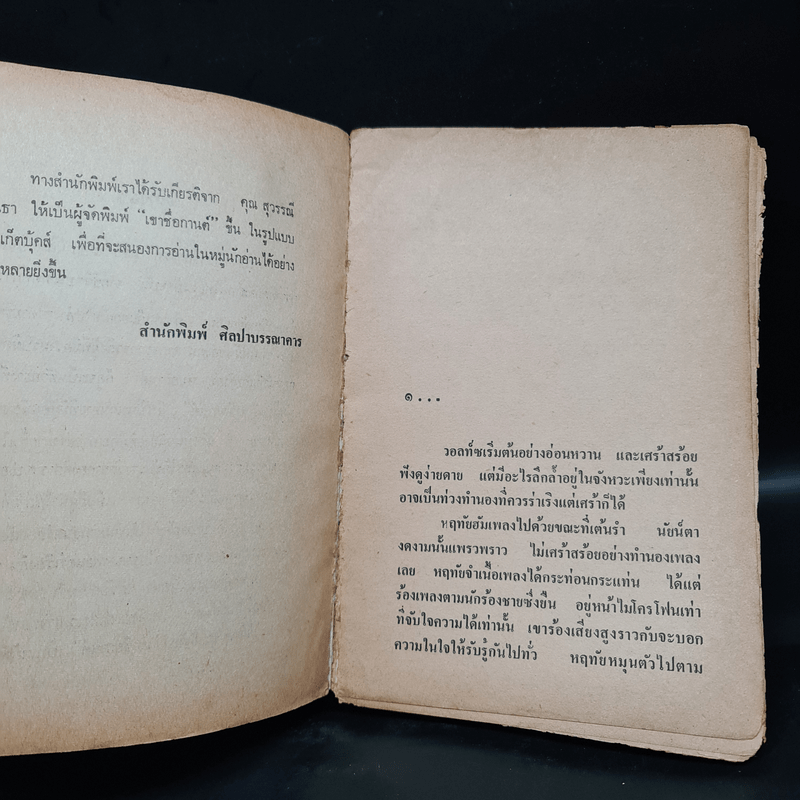 ทางสำนักพิมพ์เราได้รับเกียรติจาก คุณ สุวรรณี
ให้เป็นผู้จัดพิมพ์ “เขาชื่อกานต์” ขึ้น ในรูปแบบ
เก็ตบุ้คส์ เพื่อที่จะสนองการอ่านในหมู่นักอ่านได้อย่าง
หลายยิ่งขึ้น
สำนักพิมพ์ ศิลปาบรรณาคาร
๑...
วอลท์ซเริ่มต้นอย่างอ่อนหวาน และเศร้าสร้อย
ฟังดูง่ายดาย แต่มีอะไรลึกล้ำอยู่ในจังหวะเพียงเท่านั้น
อาจเป็นท่วงทำนองที่ควรร่าเริงแต่เศร้าก็ได้
หฤทัยฮัมเพลงไปด้วยขณะที่เต้นรำ นัยน์ตา
งดงามนั้นแพรวพราว ไม่เศร้าสร้อยอย่างทำนองเพลง
เลย หฤทัยจำเนื้อเพลงได้กระท่อนกระแท่น ได้แต่
ร้องเพลงตามนักร้องชายซึ่งยืน อยู่หน้าไมโครโฟนเท่า
ที่จับใจความได้เท่านั้น เขาร้องเสียงสูงราวกับจะบอก
ความในใจให้รับรู้กันไปทั่ว หฤทัยหมุนตัวไปตาม